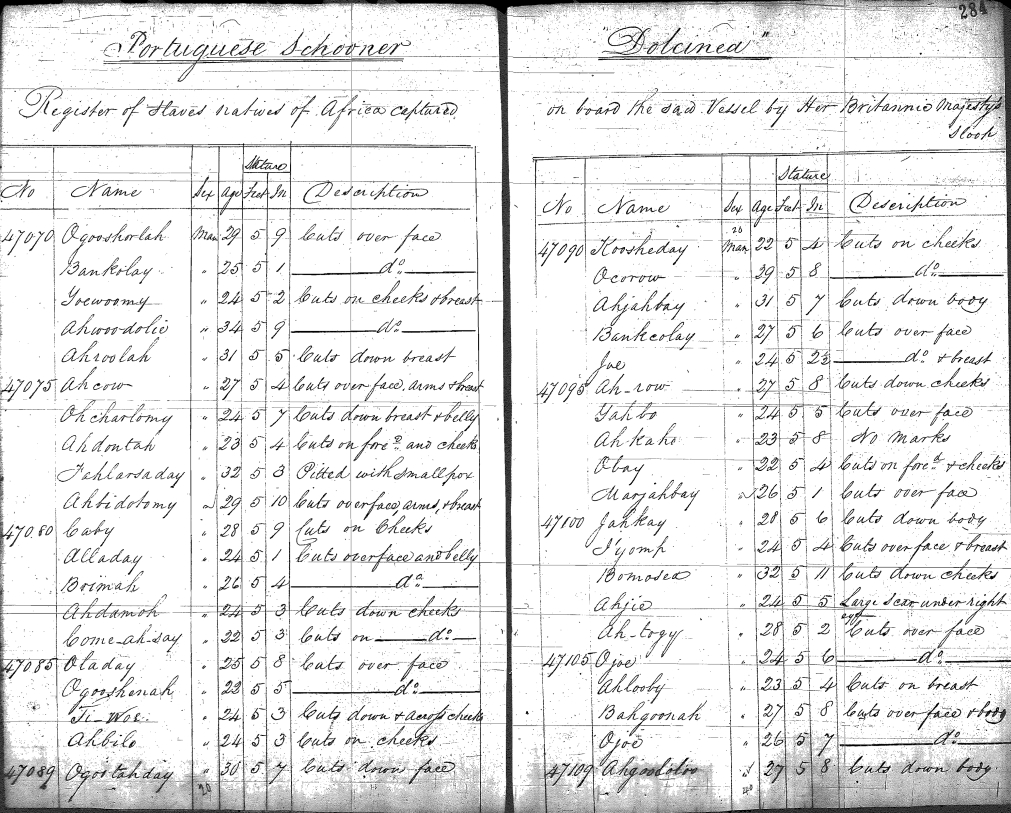 284
Portuguese Schooner
Register of Slaves natives of Africa captured
Stature
No Name Sex Age Feet In Description
47070 Ogooshorlah Man 29 5 9 Cuts over face
Bankolay " 25 5 1 do
Yoewoomy " 24 5 2 Cuts on cheeks & breast
Ahwoodolie " 34 5 9 do
Ahroolah " 31 5 5 Cuts down breast
47075 Ahcow " 27 5 4 Cuts over face, arms & breast
Ohcharlomy " 24 5 7 Cuts down breast & belly
Ahdontah " 23 5 4 Cuts on fored and cheeks
Fahlarsaday " 32 5 3 Pitted with small pox
Ahbidotomy " 29 5 10 Cuts over face, arms, & breast
47080 Caby " 28 5 9 Cuts on Cheeks
Alladay " 24 5 1 Cuts over face and belly
Boimah " 26 5 4 do
Ahdamoh " 24 5 3 Cuts down cheeks
Come-ah-say " 22 5 3 Cuts on do
47085 Oladay " 25 5 8 Cuts over face
Ogooshenah " 22 5 5 do
Ti-Woe " 24 5 3 Cuts down & across cheeks
Ahbilo " 24 5 3 Cuts on cheeks
47089 Ogootahday " 30 5 7 Cuts down face
20
"Dolcinea"
on board the said Vessel by Her Britannic Majesty's
Sloop
Stature
No Name Sex Age Feet In Description
20
47090 Koosheday Man 22 5 4 Cuts on cheeks
Ocorow " 29 5 8 do
Ahjahbay " 31 5 7 Cuts down body
Bankcolay " 27 5 6 Cuts over face
Joe " 24 5 2½ do & breast
47095 Ah-row " 27 5 8 Cuts down cheeks
Yahbo " 24 5 5 Cuts over face
Ahkaho " 23 5 8 No marks
Obay " 22 5 4 Cuts on fored & cheeks
Marjahbay " 26 5 1 Cuts over face
47100 Jahkay " 28 5 6 Cuts down body
I'yomp " 24 5 4 Cuts over face & breast
Bomosea " 32 5 11 Cuts down cheeks
Ahjie " 24 5 5 Large Scar under right
eye
Ah-togy " 28 5 2 Cuts over face
47105 Ojoe " 24 5 6 do
Ahlooby " 23 5 4 Cuts on breast
Bahgoonah " 27 5 8 Cuts over face & body
Ojoe " 26 5 7 do
47109 Ahgoodoloo " 27 5 8 Cuts down body
40